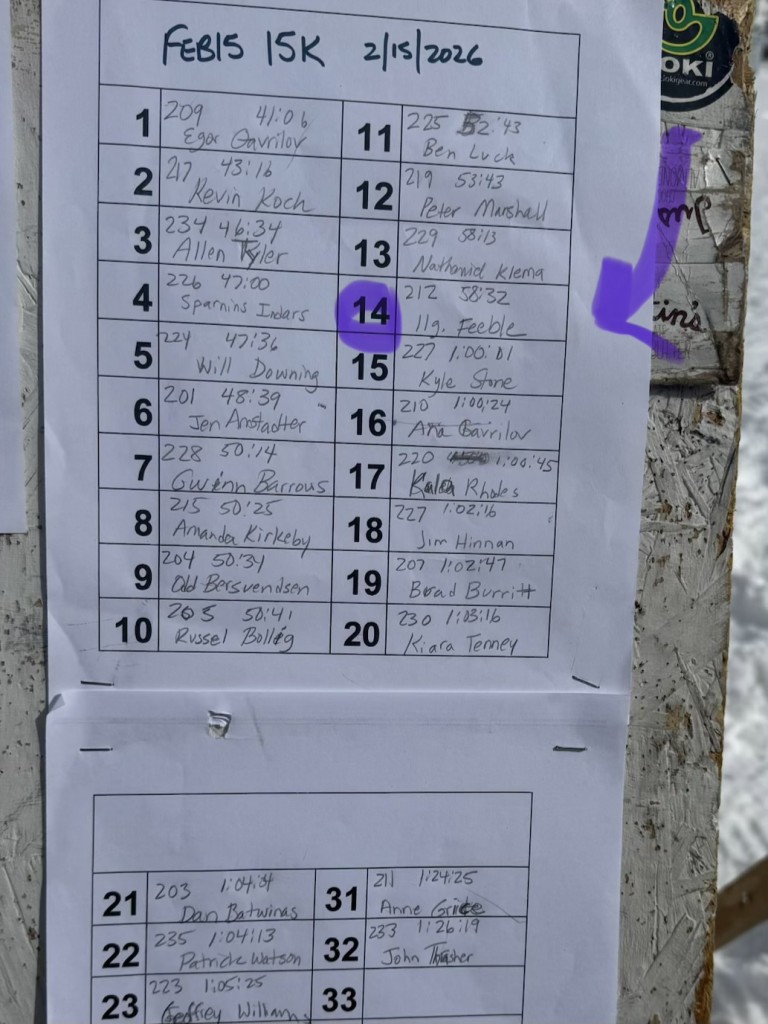 FEB15 15K 2/15/2026
1 209 41:06
Egor Gavrilov
2 217 43:16
Kevin Koch
3 234 46:34
Allen Tyler
4 226 47:00
Sparnins Indars
5 224 47:36
Will Downing
6 201 48:39
Jen Anstadter
7 228 50:14
Gwinn Barrows
8 215 50:25
Amanda Kirkeby
9 204 50:34
Odd Bersvendsen
10 205 50:41
Russel Bollig
11 225 52:43
Ben Luck
12 219 53:43
Peter Marshall
13 229 58:13
Nathaniel Klema
14 212 58:32
Ilg. Feeble
15 227 1:00:01
Kyle Stone
16 210 1:00:24
Ana Gavrilov
17 220 1:00:45
Rhodes
18 227 1:02:16
Jim Hinnan
19 207 1:02:47
Brad Burritt
20 230 1:03:16
Kiara Tenney
21 203
Dan Batwinas
22 235 1:04:13
Patrick Watson
23 223 1:05:25
Geoffrey Williams
31 211 1:24:25
Anne Grice
32 233 1:26:19
John Thrasher
33
OKI
Gokigear.com
in's